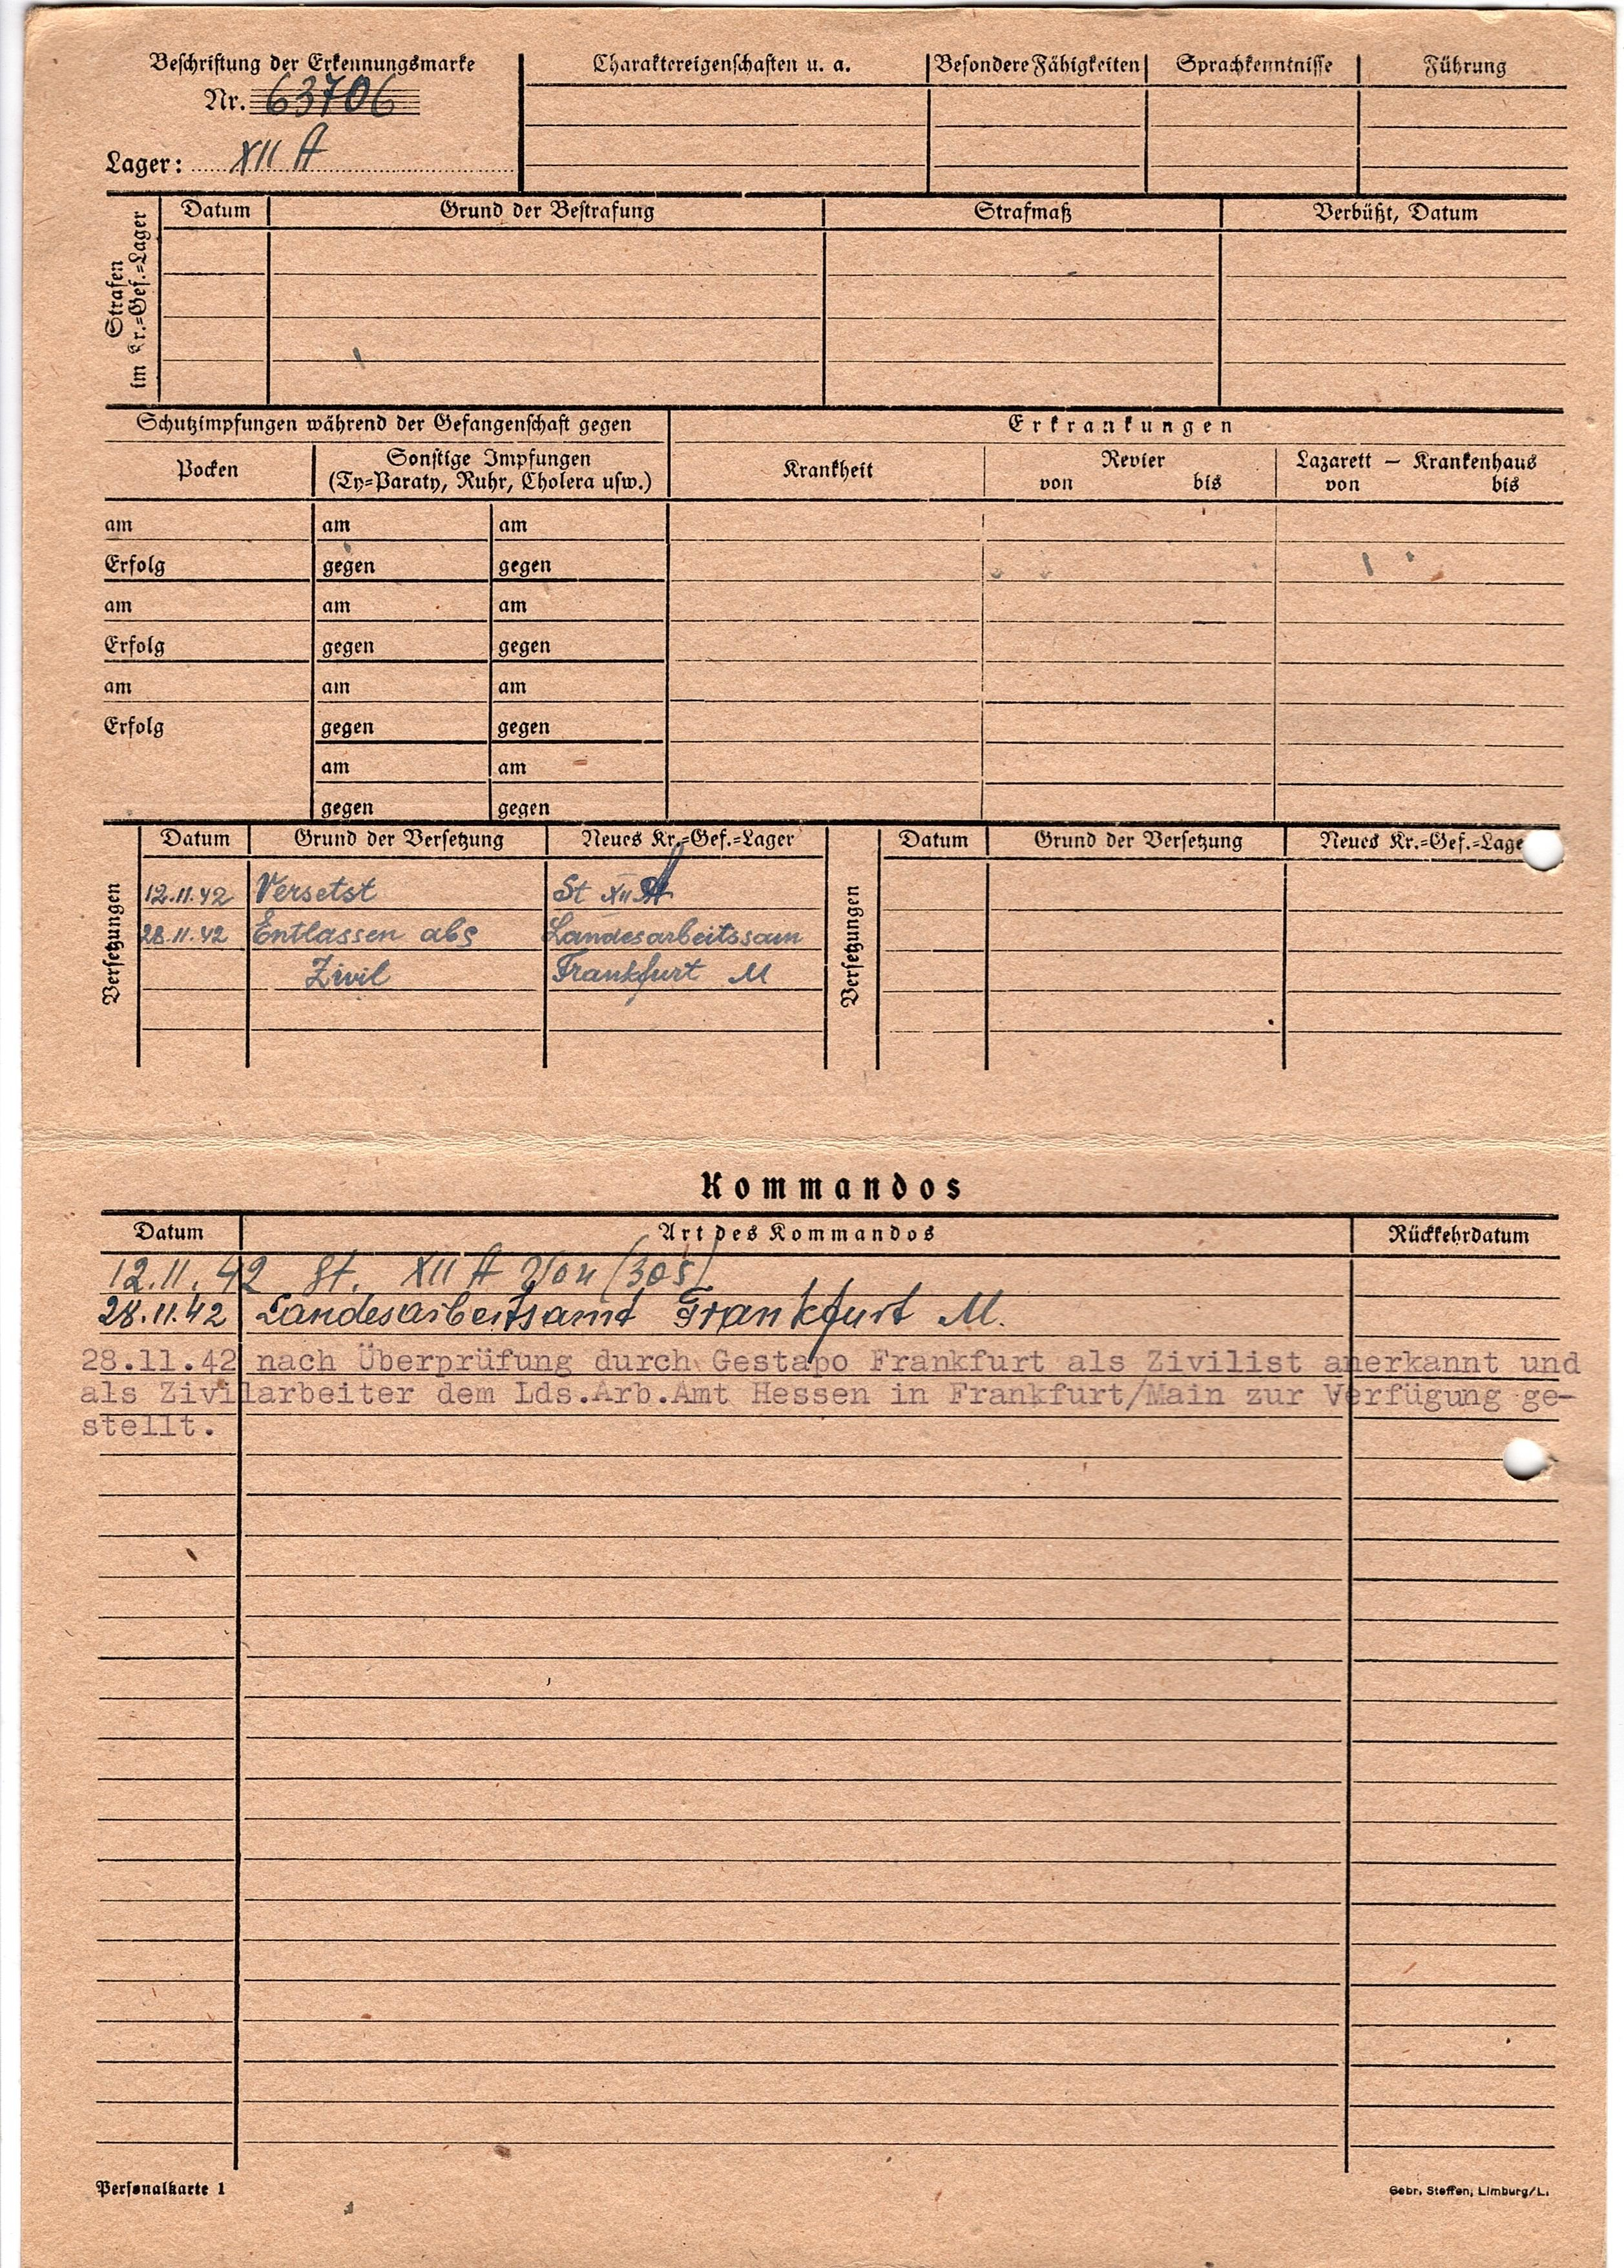 Beschriftung der Erkennungsmarke
Nr. 63706
Lager: XII A
Charaktereigenschaften u. a.
Besondere Fähigkeiten
Sprachkenntnisse
Führung
Strafen
im Kr.=Gef.=Lager
Datum
Grund der Bestrafung
Strafmaß
Verbüßt, Datum
Schutzimpfungen während der Gefangenschaft gegen
Erkrankungen
Pocken
Sonstige Impfungen
(Ty=Paraty, Ruhr, Cholera usw.)
Krankheit
Revier
von bis
Lazarett — Krankenhaus
von bis
am am am
Erfolg gegen gegen
am am am
Erfolg gegen gegen
am am am
Erfolg gegen gegen
am am
gegen gegen
Versetzungen
Datum Grund der Versetzung Neues Kr.=Gef.=Lager
12.11.42 Versetst St XII A
28.11.42 Entlassen abs Landesarbeitssam
Zivil Frankfurt M
Versetzungen
Datum Grund der Versetzung Neues Kr.=Gef.=Lage
Kommandos
Datum Art des Kommandos Rückkehrdatum
12.11.42 St. XII A Von (305)
28.11.42 Landesarbeitsamt Frankfurt M.
28.11.42 nach Überprüfung durch Gestapo Frankfurt als Zivilist anerkannt und
als Zivilarbeiter dem Lds.Arb.Amt Hessen in Frankfurt/Main zur Verfügung ge-
stellt.
Personalkarte 1
Gebr. Steffen, Limburg/L.